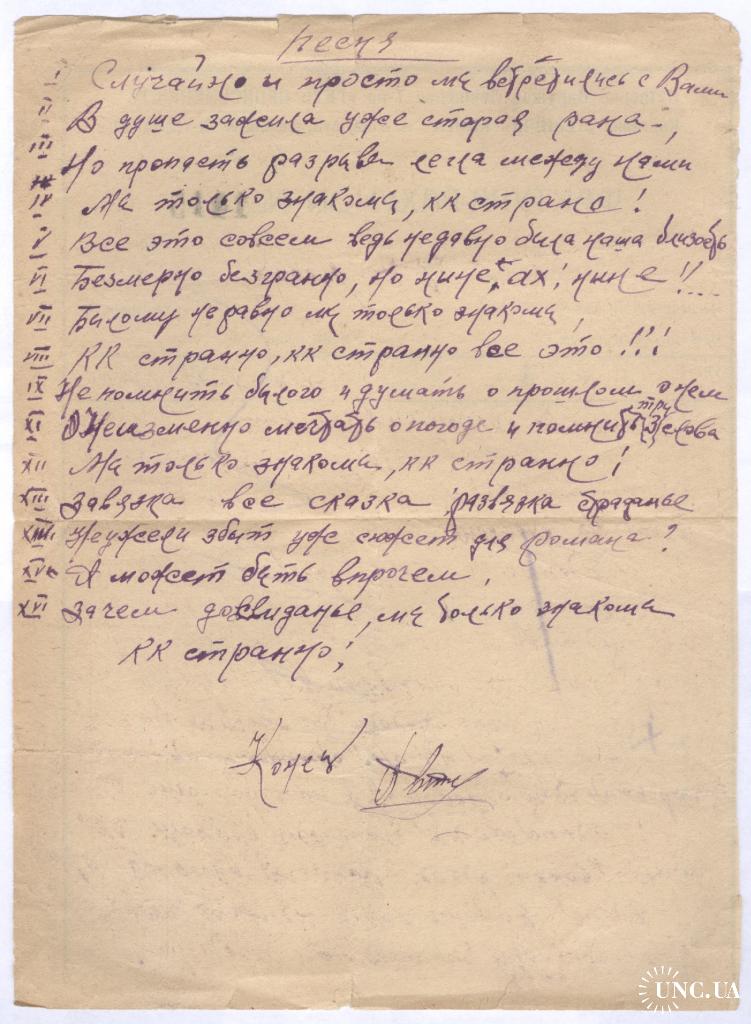 Песня
I Случайно и просто мы встретились с Вами
II В душе зажила уже старая рана,
III Но пропасть разрыва легла между нами
IV Мы только знакомы, кк страно!
V Все это совсем ведь недавно была наша близость
VI Безмерно безгранно, но ныне, ах! ныне!!...
VII Былому не равно мы только знакомы,
VIII КК странно, кк странно все это!!!
IX Не помнить былого и думать о прошлом о нем
XI Неизменно мечтать о погоде и помнить три (3) слова
XII Мы только знакомы, кк странно!
XIII Завязка все сказка, развязка страданье
XIIII Неужели збыт уже сюжет для романа?
XV А может быть впрочем,
XVI Зачем досвиданье, мы только знакомы
кк странно!
Конец
UNC.UA